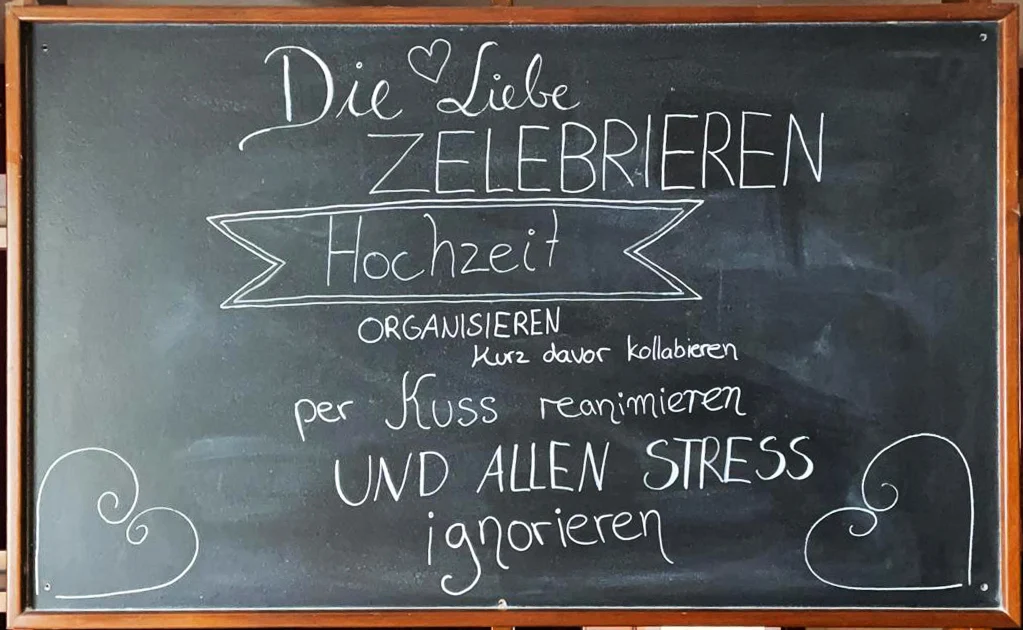 Die Liebe
ZELEBRIEREN
Hochzeit
ORGANISIEREN
kurz davor kollabieren
per Kuss reanimieren
UND ALLEN STRESS
ignorieren